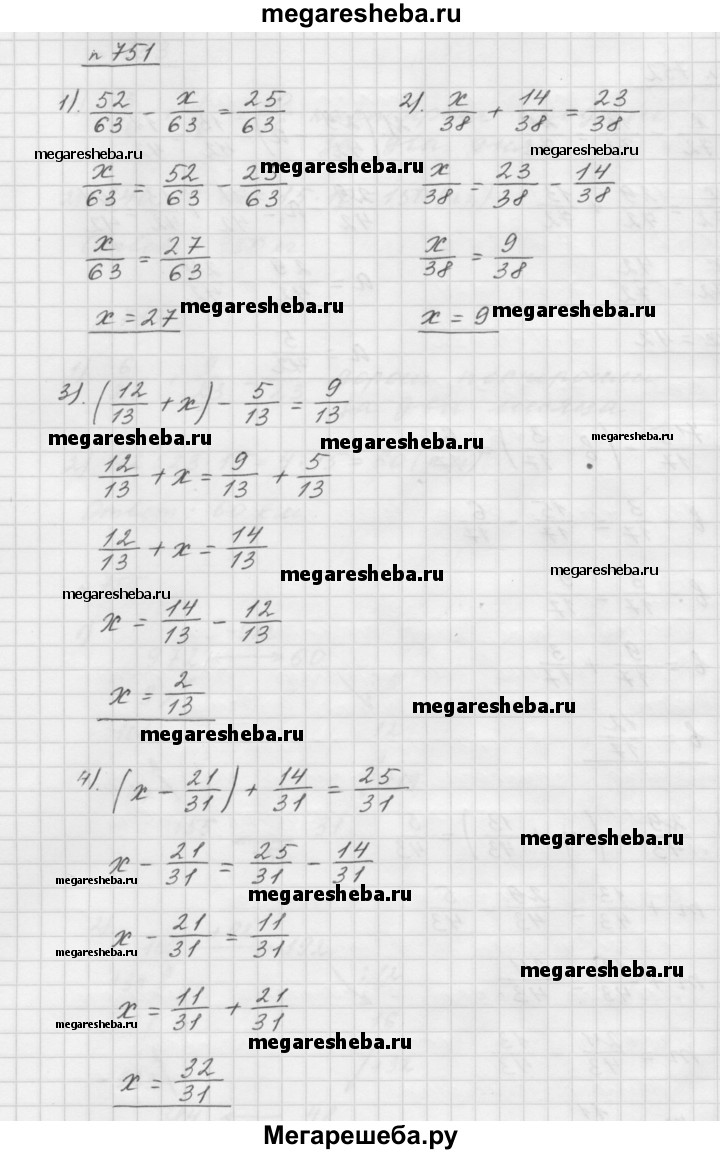 megaresheba.ru
n 751
1). 52/63 - x/63 = 25/63
2). x/38 + 14/38 = 23/38
megaresheba.ru megaresheba.ru megaresheba.ru
x/63 = 52/63 - 25/63
x/38 = 23/38 - 14/38
x/63 = 27/63
x/38 = 9/38
x = 27 megaresheba.ru
x = 9 megaresheba.ru
3). (12/13 + x) - 5/13 = 9/13
megaresheba.ru megaresheba.ru megaresheba.ru
12/13 + x = 9/13 + 5/13
12/13 + x = 14/13
megaresheba.ru megaresheba.ru
megaresheba.ru
x = 14/13 - 12/13
x = 2/13
megaresheba.ru
megaresheba.ru
4). (x - 21/31) + 14/31 = 25/31
megaresheba.ru
x - 21/31 = 25/31 - 14/31
megaresheba.ru megaresheba.ru
x - 21/31 = 11/31
megaresheba.ru megaresheba.ru
x = 11/31 + 21/31
megaresheba.ru megaresheba.ru
x = 32/31
Мегарешеба.ру